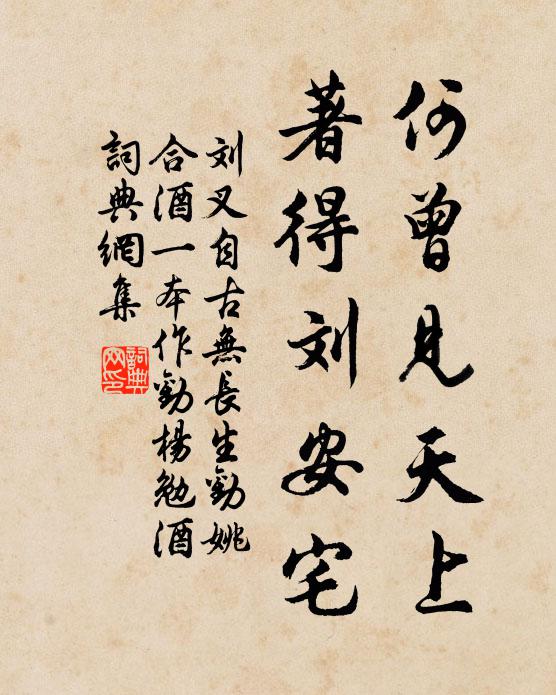 何曾見天上
著得刘安宅
刘叉自古無長生勸姚
合酒一本作勸楊勉酒
詞典網集
詞典网印